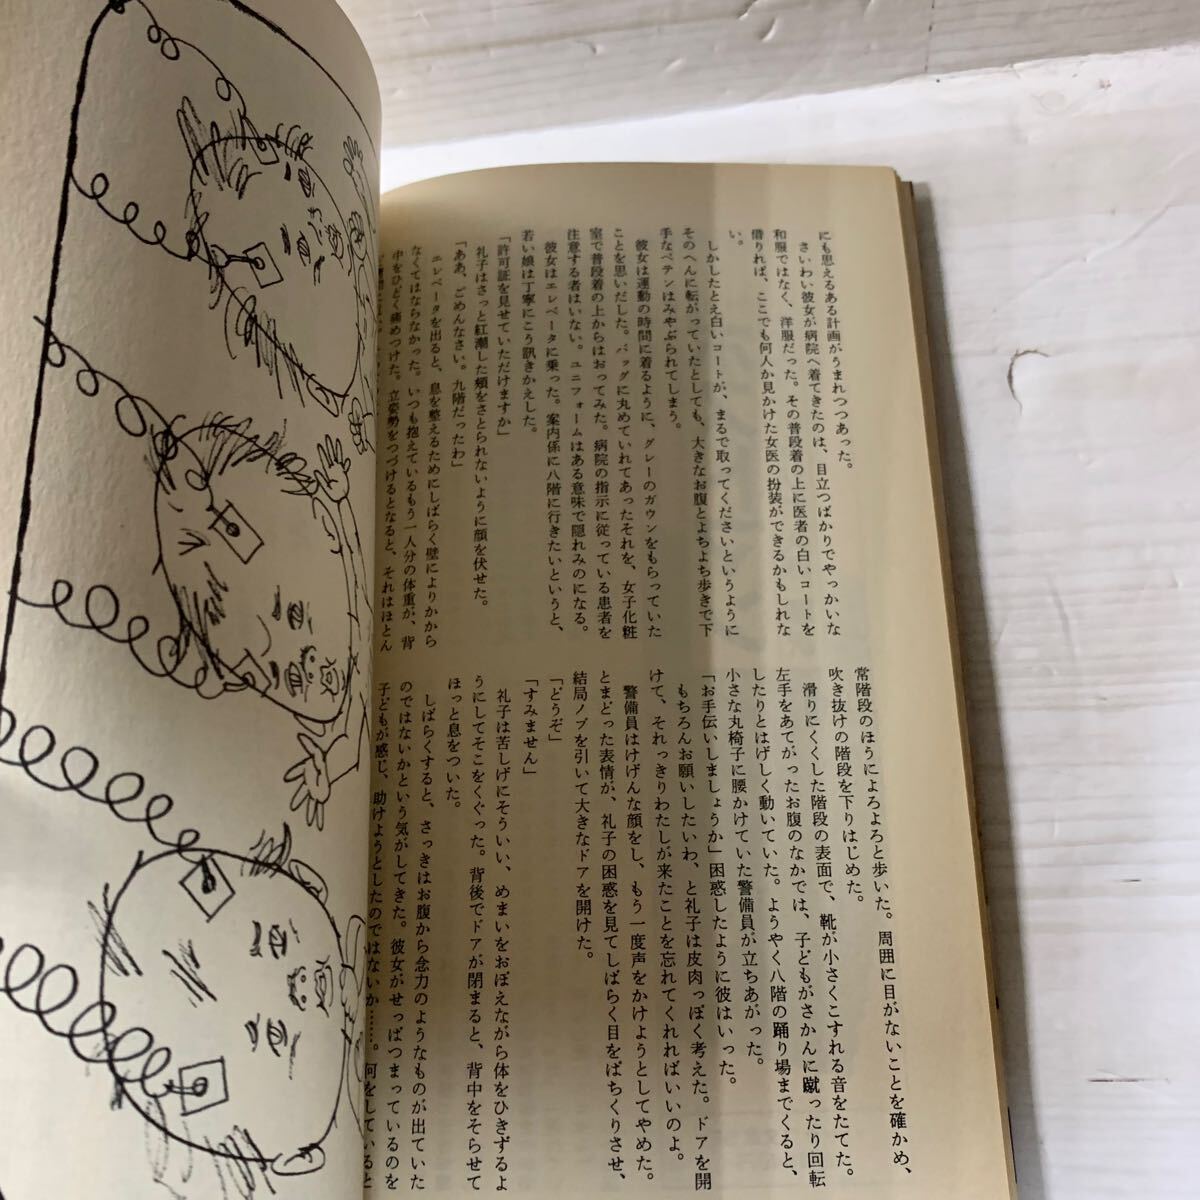 にも思えるある計画がうまれつつあった。
さいわい彼女が病院へ着てきたのは、目立つばかりでやっかいな
和服ではなく、洋服だった。その普段着の上に医者の白いコートを
借りれば、ここでも何人か見かけた女医の扮装ができるかもしれな
い。
しかしたとえ白いコートが、まるで取ってくださいというように
そのへんに転がっていたとしても、大きなお腹とよちよち歩きで下
手なペテンはみやぶられてしまう。
彼女は運動の時間に着るように、グレーのガウンをもらっていた
ことを思いだした。バッグに丸めていれてあったそれを、女子化粧
室で普段着の上からはおってみた。病院の指示に従っている患者を
注意する者はいない。ユニフォームはある意味で隠れみのになる。
彼女はエレベータに乗った。案内係に八階に行きたいというと、
若い娘は丁寧にこう訊きかえした。
「許可証を見せていただけますか」
礼子はさっと紅潮した頰をさとられないように顔を伏せた。
「ああ、ごめんなさい。九階だったわ」
エレベータを出ると、息を整えるためにしばらく壁によりかから
なくてはならなかった。いつも抱えているもう一人分の体重が、背
中をひどく痛めつけた。立姿勢をつづけるとなると、それはほとん
常階段のほうによろよろと歩いた。周囲に目がないことを確かめ、
吹き抜けの階段を下りはじめた。
滑りにくくした階段の表面で、靴が小さくこすれる音をたてた。
左手をあてがったお腹のなかでは、子どもがさかんに蹴ったり回転
したりとはげしく動いていた。ようやく八階の踊り場までくると、
小さな丸椅子に腰かけていた警備員が立ちあがった。
「お手伝いしましょうか」困惑したように彼はいった。
もちろんお願いしたいわ、と礼子は皮肉っぽく考えた。ドアを開
けて、それっきりわたしが来たことを忘れてくれればいいのよ。
警備員はけげんな顔をし、もう一度声をかけようとしてやめた。
とまどった表情が、礼子の困惑を見てしばらく目をぱちくりさせ、
結局ノブを引いて大きなドアを開けた。
「どうぞ」
「すみません」
礼子は苦しげにそういい、めまいをおぼえながら体をひきずるよ
うにしてそこをくぐった。背後でドアが閉まると、背中をそらせて
ほっと息をついた。
しばらくすると、さっきはお腹から念力のようなものが出ていた
のではないかという気がしてきた。彼女がせっぱつまっているのを
子どもが感じ、助けようとしたのではないか……。何をしていると